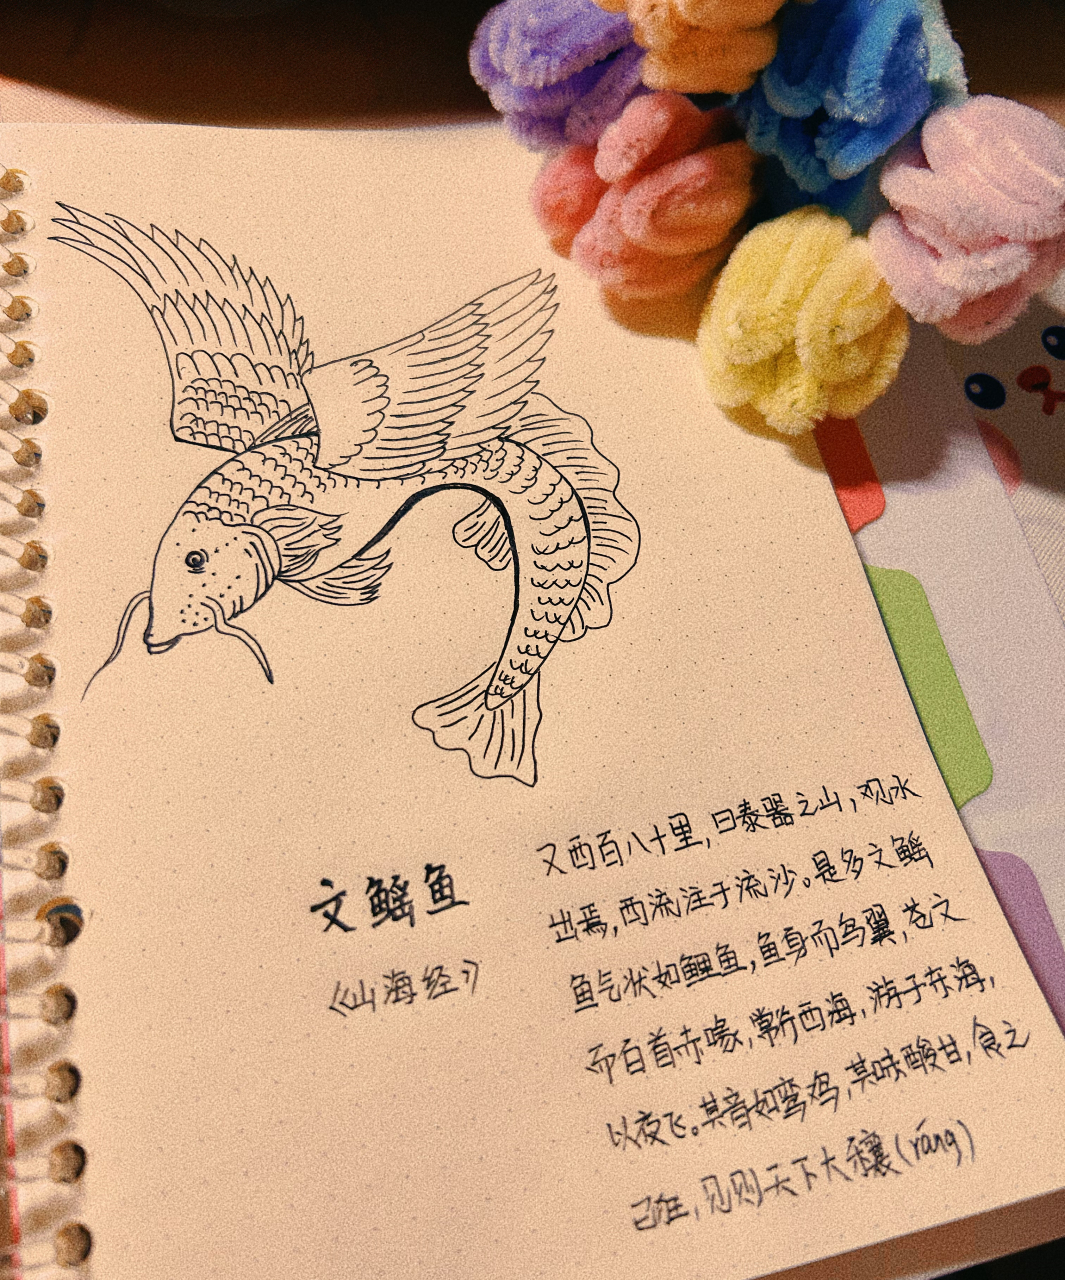 文鳐鱼
《山海经》
又西百八十里,曰泰器之山,观水
出焉,西流注于流沙。是多文鳐
鱼气状如鲤鱼,鱼身而鸟翼,苍文
而白首赤喙,常行西海,游于东海,
以夜飞。其音如鸾鸡,其味酸甘,食之
已狂,见则天下大穰(ráng)